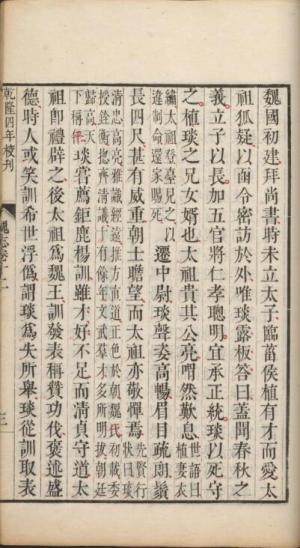 魏國初建拜尚書時未立太子臨菑侯植有才而愛太
祖狐疑以函令密訪於外唯琰露板答曰蓋聞春秋之
義立子以長加五官將仁孝聰明宜承正統琰以死守
之植琰之兄女壻也太祖貴其公亮喟然歎息
世語曰
植妻衣
繡太祖登臺見之以
違制命還家賜死
遷中尉琰聲姿高暢眉目疏朗鬚
長四尺甚有威重朝士瞻望而太祖亦敬憚焉
先賢行
狀曰琰
清忠高亮雅識經遠推方直道正色於朝魏氏初載委
授銓衡總齊清議十有餘年文武羣才多所明拔朝廷
歸高天
下稱平
琰嘗薦鉅鹿楊訓雖才好不足而清貞守道太
祖即禮辟之後太祖爲魏王訓發表稱贊功伐褒述盛
德時人或笑訓希世浮僞謂琰爲失所舉琰從訓取表
乾隆四年校刊
魏志卷十二
三